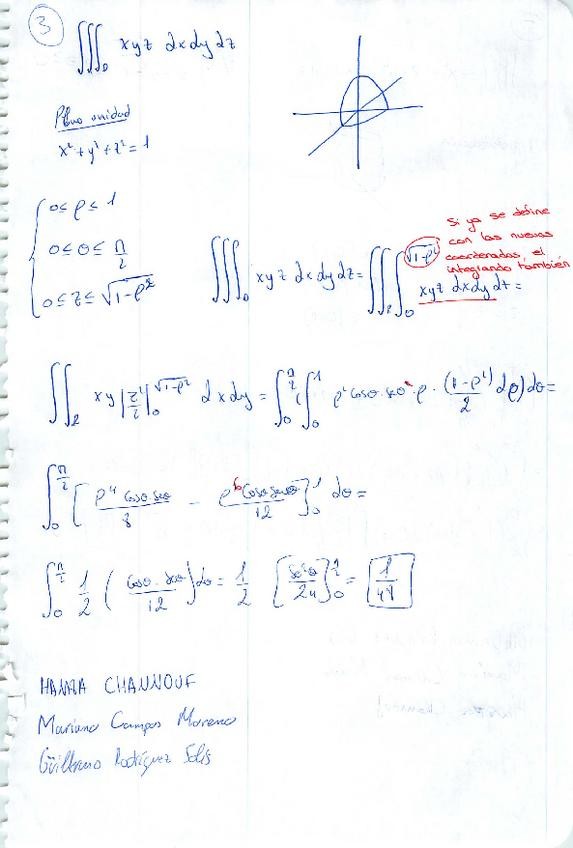 3
∭_D xyz dxdydz
Plano unidad
x² + y² + z² = 1
0 ≤ ρ ≤ 1
0 ≤ θ ≤ π/2
0 ≤ z ≤ √(1-ρ²)
Si ya se define
con las nuevas
coordenadas, el
integrando también
∭_D xyz dxdydz = ∬∫_0^√(1-ρ²) xyz dxdydz =
∬ xy |z²/2|_0^√(1-ρ²) dxdy = ∫_0^(π/2) (∫_0^1 ρ² cosθ · senθ · ρ · (1-ρ²)/2 dρ) dθ =
∫_0^(π/2) [ρ⁴ cosθ senθ / 8 - ρ⁶ cosθ senθ / 12]_0^1 dθ =
∫_0^(π/2) 1/2 (cosθ · senθ / 12) dθ = 1/2 [sen²θ / 24]_0^(π/2) = 1/48
HAMZA CHANNOUF
Mariano Campos Moreno
Guillermo Rodríguez Solís